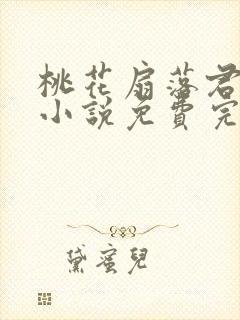 桃花扇落君
小說免費完
黛蜜兒